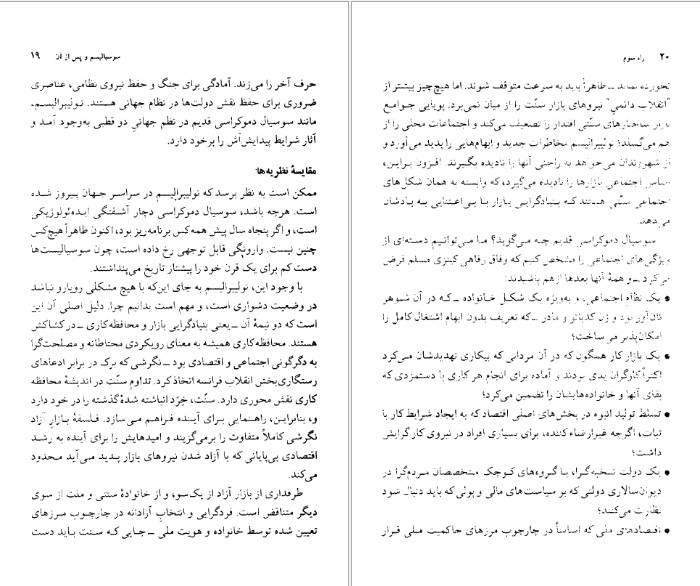 سوسیالیسم و پس از آن ۱۹
حرف آخر را می‌زند. آمادگی برای جنگ و حفظ نیروی نظامی، عناصری
ضروری برای حفظ نقش دولت‌ها در نظام جهانی هستند. نولیبرالیسم،
مانند سوسیال دموکراسی قدیم در نظم جهانیِ دو قطبی به‌وجود آمد و
آثار شرایط پیدایش‌اش را برخود دارد.
مقایسهٔ نظریه‌ها:
ممکن است به نظر برسد که نولیبرالیسم در سراسر جهان پیروز شده
است. هرچه باشد، سوسیال دموکراسی دچار آشفتگی ایده‌ئولوژیکی
است، و اگر پنجاه سال پیش همه‌کس برنامه‌ریز بود، اکنون ظاهراً هیچ‌کس
چنین نیست. وارونگی قابل توجهی رخ داده است، چون سوسیالیست‌ها
دست کم برای یک قرن خود را پیشتاز تاریخ می‌پنداشتند.
با وجود این، نولیبرالیسم به جای این‌که با هیچ مشکلی رویارو نباشد
در وضعیت دشواری است، و مهم است بدانیم چرا. دلیل اصلی آن این
است که دو نیمهٔ آن ــ یعنی بنیادگرایی بازار و محافظه‌کاری ــ درکشاکش
هستند. محافظه‌کاری همیشه به معنای رویکردی محتاطانه و مصلحت‌گرا
به دگرگونی اجتماعی و اقتصادی بود ــ نگرشی که برک در برابر ادعاهای
رستگاری‌بخش انقلاب فرانسه اتخاذ کرد. تداوم سنّت در اندیشهٔ محافظه
کاری نقش محوری دارد. سنّت، خِرَد انباشته شدهٔ گذشته را در خود دارد
و، بنابراین، راهنمایی برای آینده فراهم می‌سازد. فلسفهٔ بازارِ آزاد
نگرشی کاملاً متفاوت را برمی‌گزیند و امیدهایش را برای آینده به رشد
اقتصادی بی‌پایانی که با آزاد شدن نیروهای بازار پدید می‌آید محدود
می‌کند.
طرفداری از بازار آزاد از یک‌سو، و از خانوادهٔ سنّتی و ملت از سوی
دیگر متناقض است. فردگرایی و انتخابِ آزادانه در چارچوب مرزهای
تعیین شده توسط خانواده و هویت ملی ــ جایی که سنت باید دست
۲۰ راه سوم
نخورده بماند ــ ظاهراً باید به سرعت متوقف شوند. اما هیچ‌چیز بیشتر از
"انقلاب دائمیِ" نیروهای بازار سنّت را از میان نمی‌برد. پویایی جوامعِ
بازار ساختارهای سنّتی اقتدار را تضعیف می‌کند و اجتماعات محلی را از
هم می‌گسلد؛ نولیبرالیسم مخاطرات جدید و ابهام‌هایی را پدید می‌آورد و
از شهروندان می‌خواهد به راحتی آنها را نادیده بگیرند. افزون براین،
اساس اجتماعی بازارها را نادیده می‌گیرد، که وابسته به همان شکل‌های
اجتماعی سنّتی هستند که بنیادگرایی بازار با بی‌اعتنایی به بادشان
می‌دهد.
سوسیال دموکراسی قدیم چه می‌گوید؟ ما می‌توانیم دسته‌ای از
ویژگی‌های اجتماعی را مشخص کنیم که وفاق رفاهی کینزی مسلم فرض
می‌کرد ــ و همهٔ آنها بعدها از هم پاشیدند:
● یک نظام اجتماعی، و به‌ویژه یک شکل خانواده ــ که در آن شوهر
نان‌آور بود و زن کدبانو و مادر ــ که تعریف بدون ابهام اشتغال کامل را
امکان‌پذیر می‌ساخت؛
● یک بازار کار همگون که در آن مردانی که بیکاری تهدیدشان می‌کرد
اکثراً کارگران یدی بودند و آماده برای انجام هر کاری با دستمزدی که
بقای آنها و خانواده‌هایشان را تضمین می‌کرد؛
● تسلط تولید انبوه در بخش‌های اصلی اقتصاد که به ایجاد شرایط کار با
ثبات، اگرچه غیرارضاء کننده، برای بسیاری افراد در نیروی کار گرایش
داشت؛
● یک دولت نخبه‌گرا، با گروه‌های کوچک متخصصان مردم‌گرا در
دیوان‌سالاری دولتی که بر سیاست‌های مالی و پولی که باید دنبال شود
نظارت می‌کنند؛
● اقتصادهای ملی که اساساً در چارچوب مرزهای حاکمیت ملی قرار